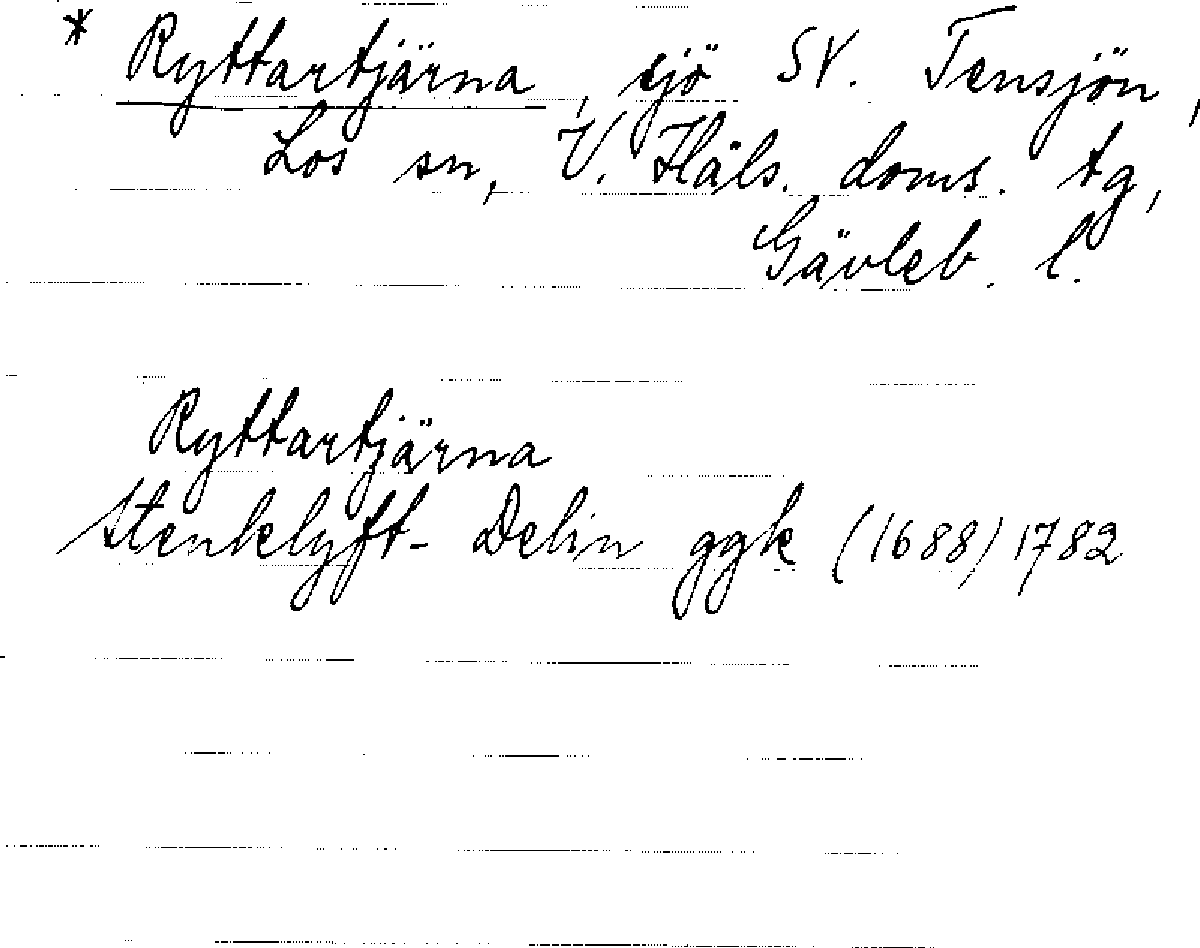 * Ryttartjärna, sjö SV. Tensjön,
Los sn, V. Häls. doms. tg,
Gävleb. l.
Ryttartjärna
Stenklyft- Delin ggk (1688) 1782